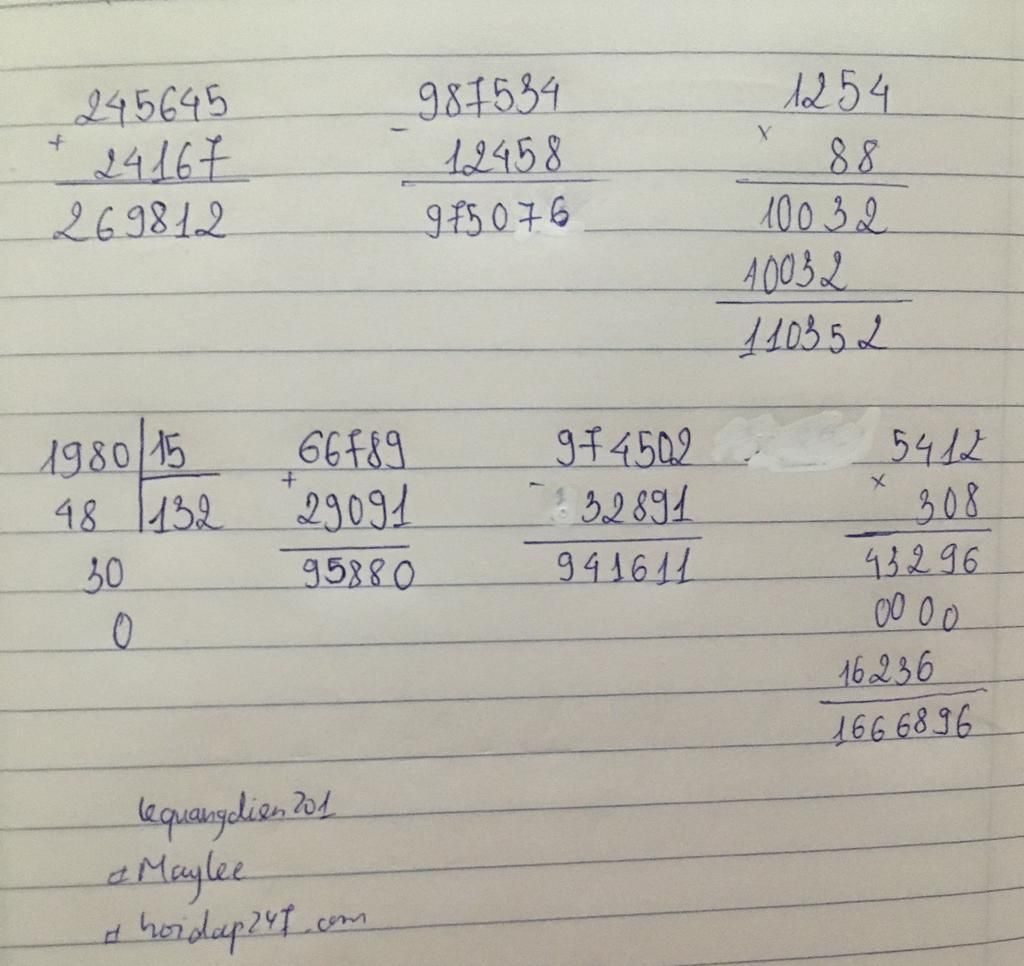 245645 987534 1254
+ - x
24167 12458 88
269812 975076 10032
10032
110352
1980 15 66789 974502 5412
+ - x
48 132 29091 32891 308
30 95880 941611 43296
0 0000
16236
1666896
lequangdien201
Maylee
hoidap247.com